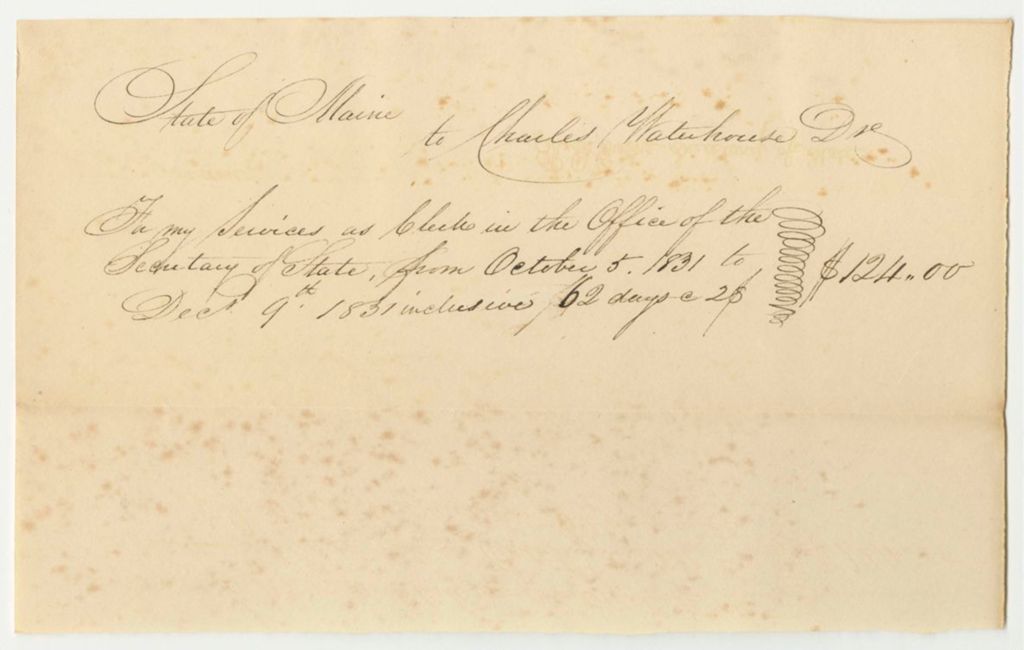 State of Maine
to Charles Waterhouse Dr
For my Services as Clerk in the Office of the
Secretary of State, from October 5. 1831 to
Decr 9th 1831 inclusive 62 days @ 2$
$124.00